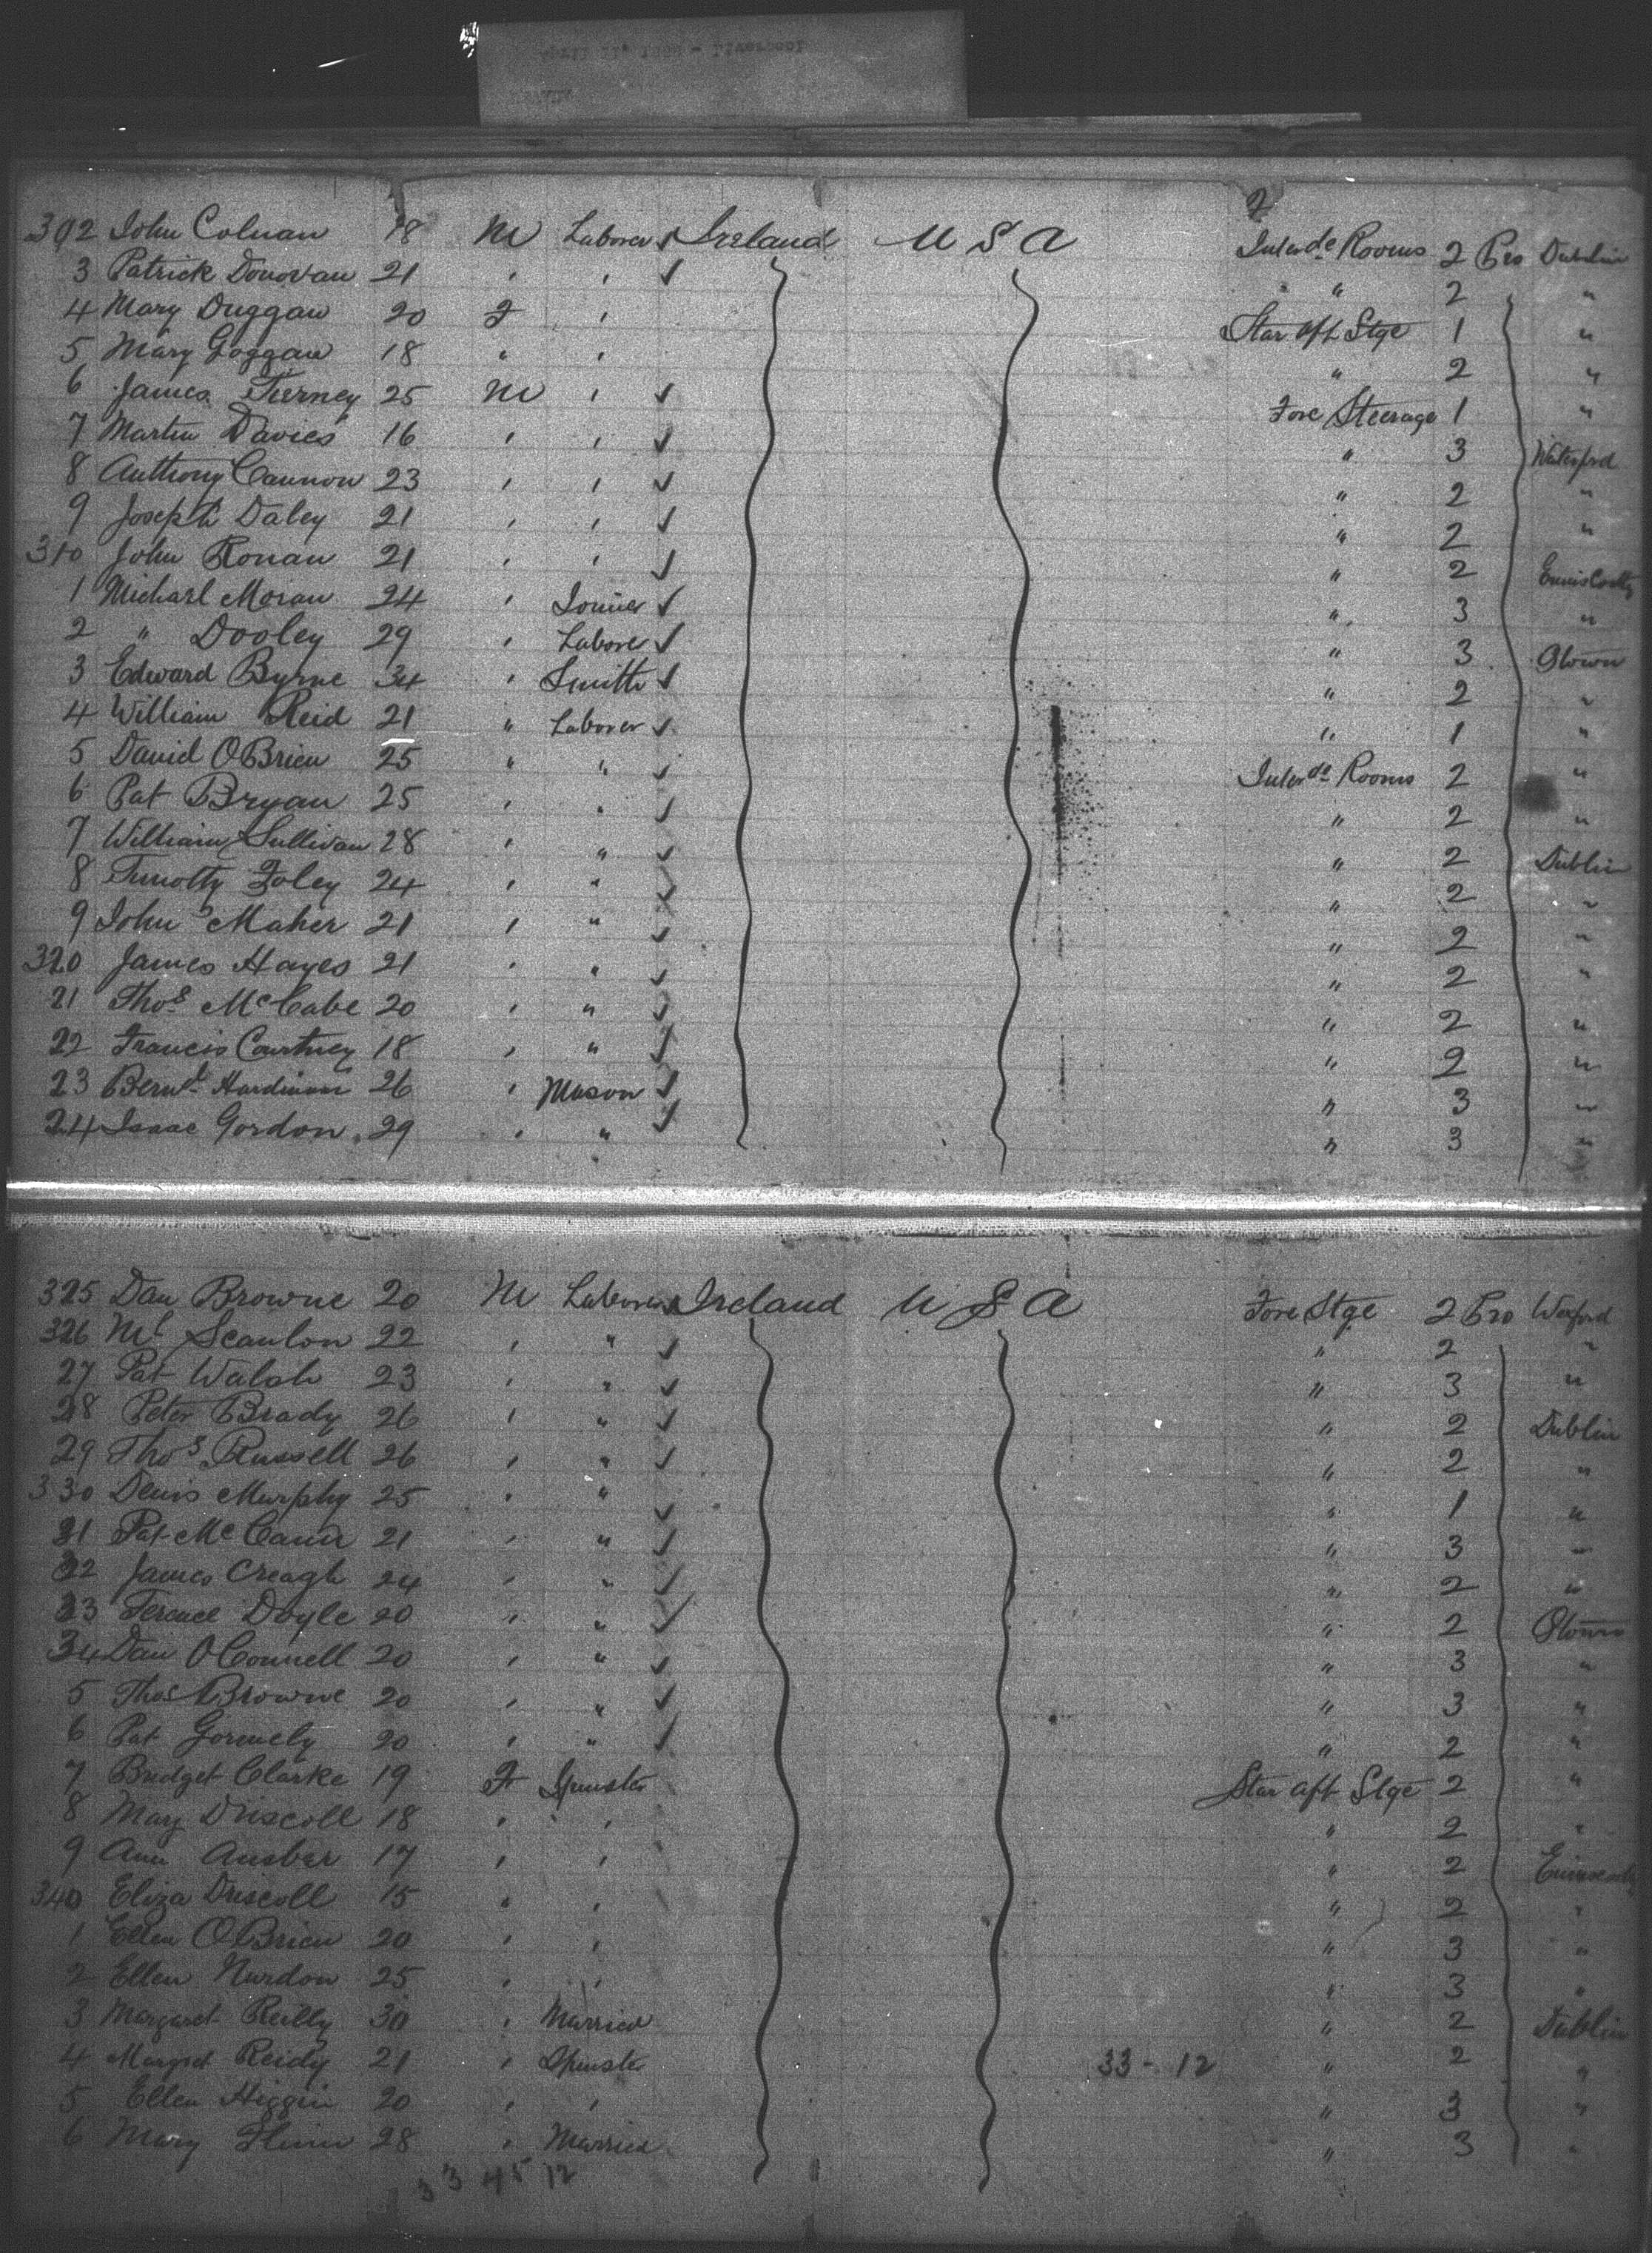 2
302 John Colman 18 M Laborer ✓ Ireland U S A Interde Rooms 2 Pro Dublin
3 Patrick Donovan 21 ' ' ✓ " " 2 "
4 Mary Duggan 20 F ' Star aft Stge 1 "
5 Mary Goggan 18 " ' " 2 "
6 James Tierney 25 M ' ✓ Fore Steerage 1 "
7 Martin Davies 16 ' ' ✓ " 3 Waterford
8 Anthony Cannon 23 ' ' ✓ " 2 "
9 Joseph Daley 21 ' ' ✓ " 2 "
310 John Ronan 21 ' ' ✓ " 2 Enniscorthy
1 Michael Moran 24 ' Joiner ✓ " 3 "
2 " Dooley 29 ' Laborer ✓ " 3 Qtown
3 Edward Byrne 34 ' Smith ✓ " 2 "
4 William Reid 21 " Laborer ✓ " 1 "
5 David OBrien 25 " " ✓ Interde Rooms 2 "
6 Pat Bryan 25 ' " ✓ " 2 "
7 William Sullivan 28 ' " ✓ " 2 Dublin
8 Timothy Foley 24 ' " ✓ " 2 "
9 John Maher 21 ' " ✓ " 2 "
320 James Hayes 21 ' " ✓ " 2 "
21 Thos McCabe 20 ' " ✓ " 2 "
22 Francis Courtney 18 ' " ✓ " 2 "
23 Bernd Hardiman 26 ' Mason ✓ " 3 "
24 Isaac Gordon 29 ' " ✓ " 3 "
325 Dan Browne 20 M Laborer ✓ Ireland U S A Fore Stge 2 Pro Wexford
326 Ml Scanlon 22 ' " ✓ " 2 "
27 Pat Walsh 23 ' " ✓ " 3 "
28 Peter Brady 26 ' " ✓ " 2 Dublin
29 Thos Russell 26 ' " ✓ " 2 "
330 Denis Murphy 25 ' " ✓ " 1 "
31 Pat McCann 21 ' " ✓ " 3 "
32 James Creagh 24 ' " ✓ " 2 "
33 Terence Doyle 20 " " ✓ " 2 Qtown
34 Dan OConnell 20 ' " ✓ " 3 "
5 Thos Browne 20 ' " ✓ " 3 "
6 Pat Gormely 20 ' " ✓ " 2 "
7 Bridget Clarke 19 F Spinster Star aft Stge 2 "
8 Mary Driscoll 18 ' ' " 2 "
9 Ann Ausber 17 ' ' " 2 Enniscorthy
340 Eliza Driscoll 15 " ' " 2 "
1 Ellen OBrien 20 ' ' " 3 "
2 Ellen Nurdon 25 ' ' " 3 "
3 Margaret Reilly 30 ' Married " 2 Dublin
4 Margret Reidy 21 ' Spinster 33 - 12 " 2 "
5 Ellen Higgin 20 ' ' " 3 "
6 Mary Flinn 28 ' Married " 3 "
33 45 12